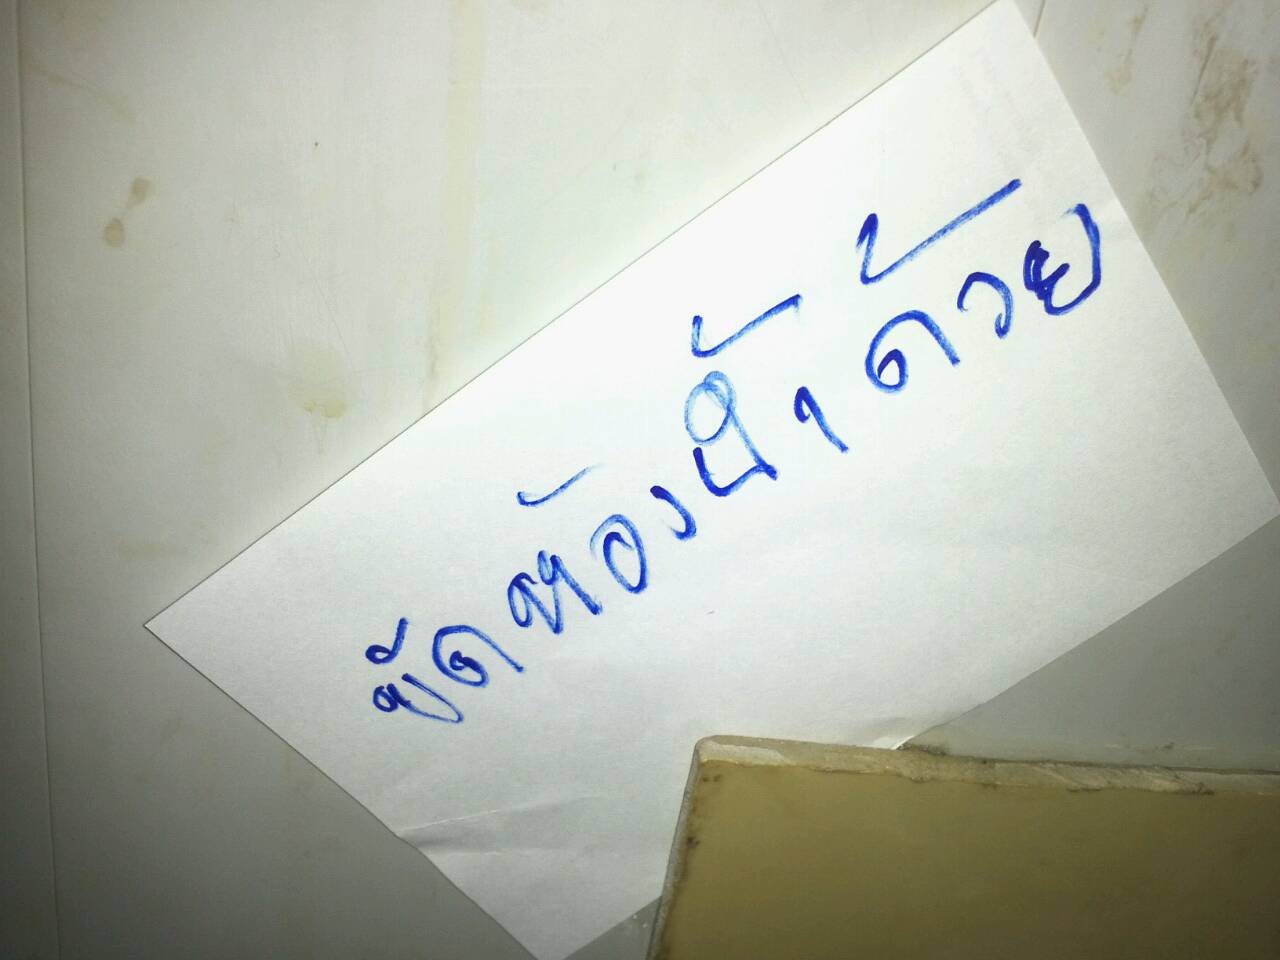 ขัดห้องน้ำด้วย